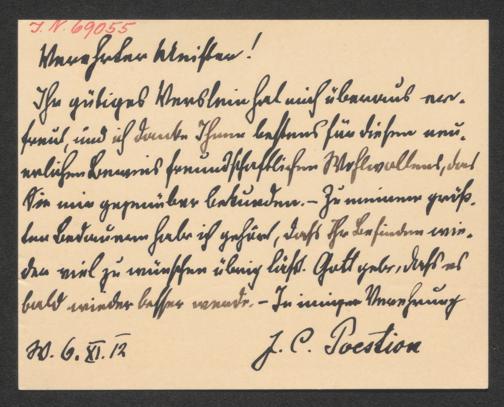 I. N. 69055
Verehrter Meister!
Ihr gütiges Verslein hat mich überaus er-
freut, und ich danke Ihnen bestens für diesen neu-
erlichen Beweis freundschaftlichen Wohlwollens, das
Sie mir gegenüber bekunden. – Zu meinem größ-
ten Bedauern habe ich gehört, daß Ihr Befinden wie-
der viel zu wünschen übrig läßt. Gott gebe, daß es
bald wieder besser werde. – In inniger Verehrung
W. 6. XI. 12
J. C. Poestion